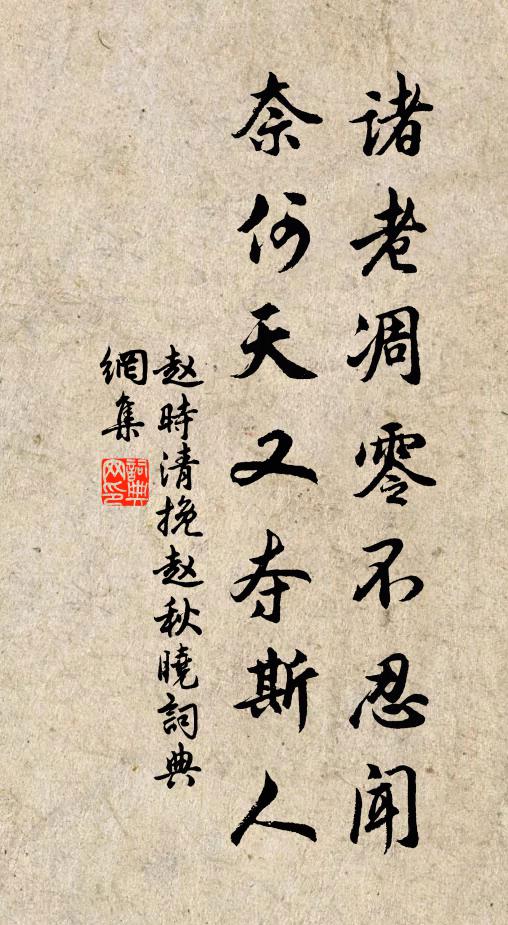 诸老凋零不忍闻
奈何天又夺斯人
赵時清挽赵秋曉詞典
網集
詞典
网印